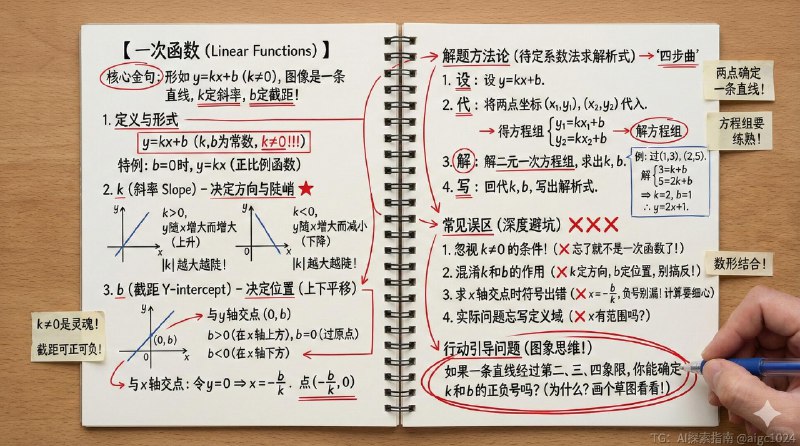 【一次函数 (Linear Functions)】
核心金句: 形如 y=kx+b (k≠0), 图像是一条
直线, k定斜率, b定截距!
1. 定义与形式
y=kx+b (k,b为常数, k≠0!!!)
特例: b=0时, y=kx (正比例函数)
2. k (斜率 Slope) – 决定方向与陡峭 ★
y
x
0
k>0,
y随x增大而增大
(上升)
|k|越大越陡!
y
x
0
k<0,
y随x增大而减小
(下降)
|k|越大越陡!
3. b (截距 Y-intercept) – 决定位置 (上下平移)
y
(0, b)
0
x
与y轴交点 (0, b)
b>0 (在x轴上方), b=0 (过原点)
b<0 (在x轴下方)
与x轴交点: 令y=0 ⇒ x=-b/k. 点(-b/k, 0)
k≠0是灵魂!
截距可正可负!
解题方法论 (待定系数法求解析式) → '四步曲'
1. 设: 设 y=kx+b.
2. 代: 将两点坐标 (x₁,y₁), (x₂,y₂) 代入.
→ 得方程组 { y₁=kx₁+b
y₂=kx₂+b → 解方程组
3. 解: 解二元一次方程组, 求出k, b.
4. 写: 回代k, b, 写出解析式.
例: 过(1,3), (2,5).
解 { 3=k+b
5=2k+b
⇒ k=2, b=1
∴ y=2x+1.
常见误区 (深度避坑) ✕✕✕
1. 忽视 k≠0 的条件! (✕ 忘了就不是一次函数了!)
2. 混淆k和b的作用 (✕ k定方向, b定位置, 别搞反!)
3. 求x轴交点时符号出错 (✕ x=-b/k, 负号别漏! 计算要细心)
4. 实际问题忘写定义域 (✕ x有范围吗?)
行动引导问题 (图象思维!)
如果一条直线经过第二、三、四象限, 你能确定
k和b的正负号吗? (为什么? 画个草图看看!)
两点确定
一条直线!
方程组要
练熟!
数形结合!
TG: AI探索指南 @aigc1024